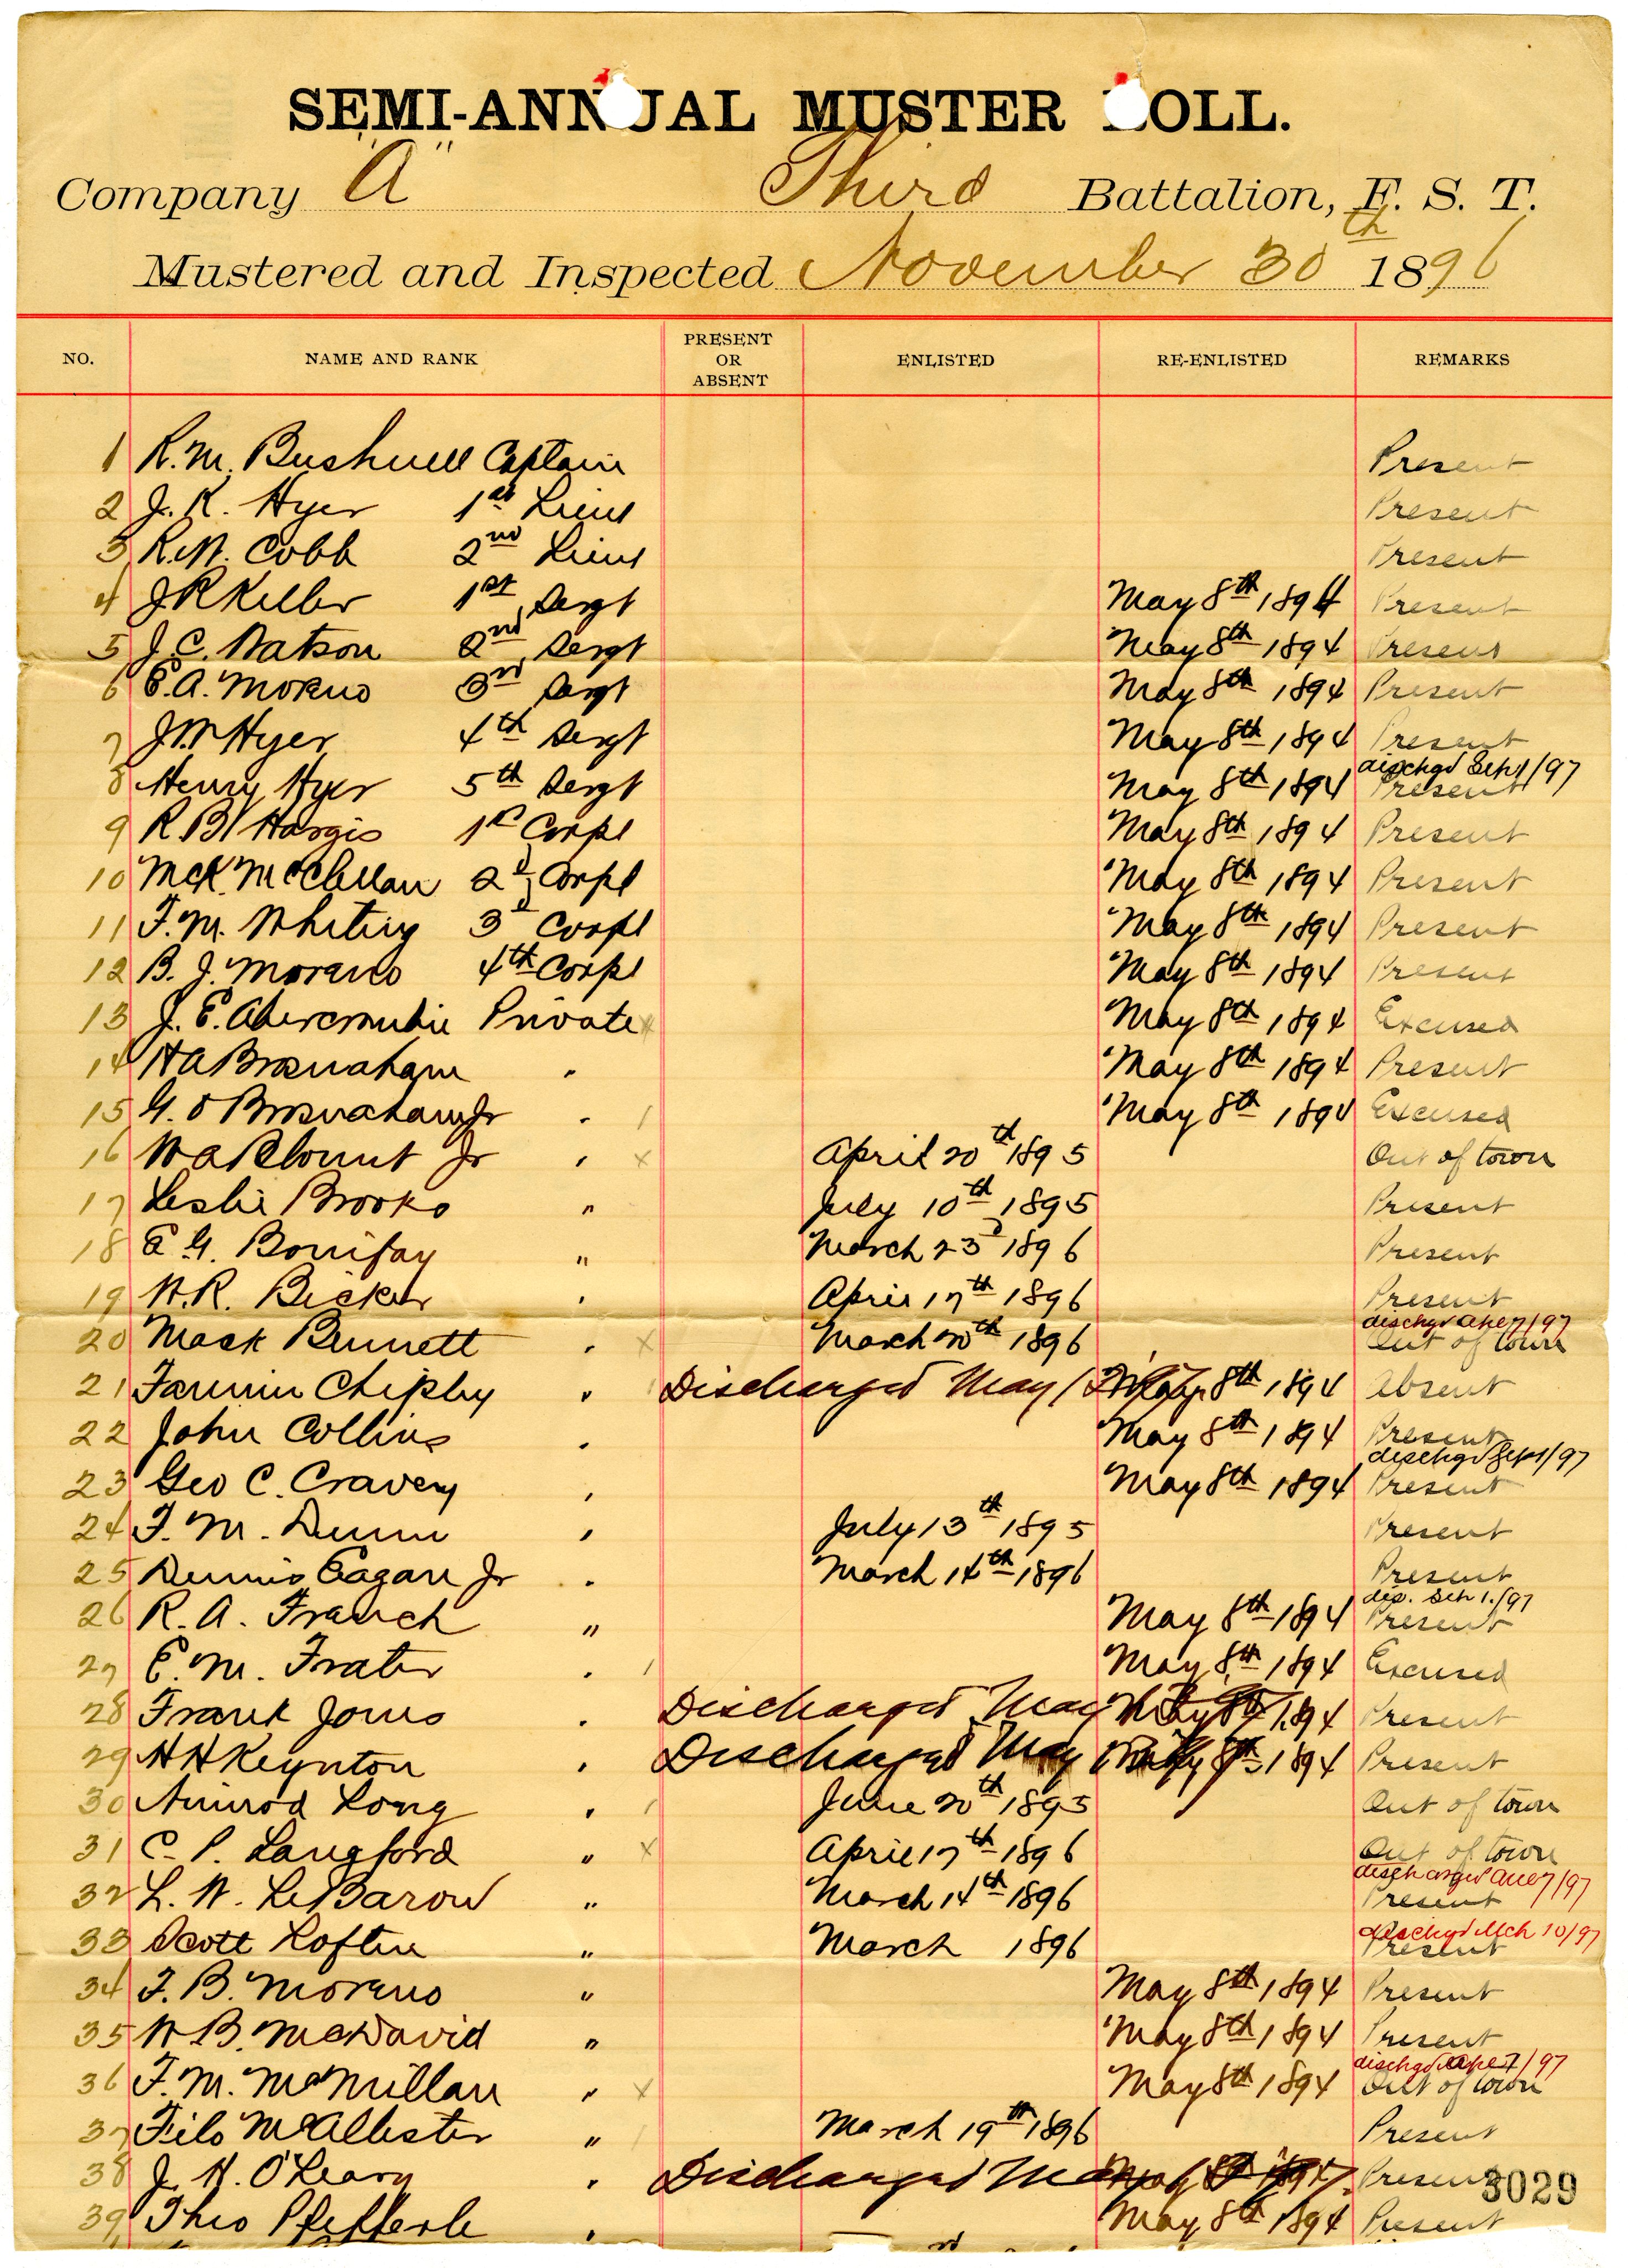 SEMI-ANNUAL MUSTER ROLL.
Company "A" Third Battalion, F. S. T.
Mustered and Inspected November 30th 1896
NO. NAME AND RANK PRESENT OR ABSENT ENLISTED RE-ENLISTED REMARKS
1 R. M. Bushnell Captain Present
2 J. K. Hyer 1st Lieut Present
3 R. M. Cobb 2nd Lieut Present
4 J R Keller 1st Sergt May 8th 1894 Present
5 J. C. Watson 2nd Sergt May 8th 1894 Present
6 E. A. Moreno 3rd Sergt May 8th 1894 Present
7 J W Hyer 4th Sergt May 8th 1894 Present
8 Henry Hyer 5th Sergt May 8th 1894 dischgd Sep 1/97 Present
9 R B Hargis 1st Corpl May 8th 1894 Present
10 McK. McClellan 2d Corpl May 8th 1894 Present
11 F. M. Whiting 3d Corpl May 8th 1894 Present
12 B. J. Moreno 4th Corpl May 8th 1894 Present
13 J. E. Abercrombie Private x May 8th 1894 Excused
14 H A Brosnaham " May 8th 1894 Present
15 G. O Brosnaham Jr " / May 8th 1894 Excused
16 W A Blount Jr " x April 20th 1895 Out of town
17 Leslie Brooks " July 10th 1895 Present
18 E. G. Bonifay " March 23d 1896 Present
19 W. R. Bicker " April 17th 1896 Present
20 Mack Bennett " x March 20th 1896 dischgd Ap 27/97 Out of town
21 Fannin Chipley " / Discharged May May 8th 1894 Absent
22 John Collins " May 8th 1894 Present
23 Geo C. Cravey " May 8th 1894 dischgd Sept 1/97 Present
24 F. M. Dunn " July 13th 1895 Present
25 Dennis Eagan Jr " March 14th 1896 Present
26 R. A. French " May 8th 1894 dis. Sep 1./97 Present
27 E. M. Frater " / May 8th 1894 Excused
28 Frank Jones " Discharged May May 8th 1894 Present
29 H H Keynton " Discharged May May 8th 1894 Present
30 Nimrod Long " / June 20th 1895 Out of town
31 C. P. Langford " x April 17th 1896 Out of town
32 L. W. LeBaron " March 14th 1896 discharged 7/97 Present
33 Scott Loftin " March 1896 dischgd Mch 10/97 Present
34 F. B. Moreno " May 8th 1894 Present
35 W B. McDavid " May 8th 1894 Present
36 F. M. McMillan " x May 8th 1894 dischgd 7/97 Out of town
37 Filo McAllister " / March 19th 1896 Present
38 J. H. O'Leary " Discharged May Present
3029
39 Theo Pfefferle " May 8th 1894 Present